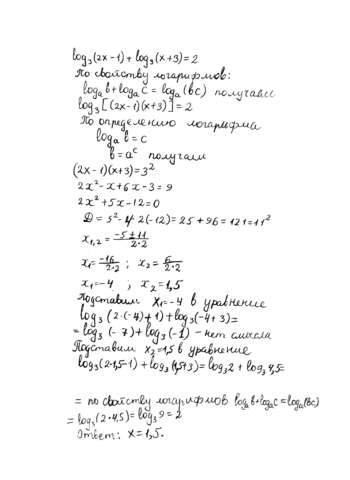 log₃(2x-1)+log₃(x+3)=2
По свойству логарифмов:
logₐb+logₐc=logₐ(bc) получаем
log₃[(2x-1)(x+3)]=2
По определению логарифма
logₐb=c
b=aᶜ получали
(2x-1)(x+3)=3²
2x²-x+6x-3=9
2x²+5x-12=0
D=5²-4·2(-12)=25+96=121=11²
x₁,₂=(-5±11)/(2·2)
x₁=-16/(2·2); x₂=6/(2·2)
x₁=-4; x₂=1,5
Подставим x₁=-4 в уравнение
log₃(2·(-4)+1)+log₃(-4+3)=
=log₃(-7)+log₃(-1) - нет смысла
Подставим x₂=1,5 в уравнение
log₃(2·1,5-1)+log₃(1,5+3)=log₃2+log₃4,5=
= по свойству логарифмов logₐb+logₐc=logₐ(bc)
=log₃(2·4,5)=log₃9=2
Ответ: x=1,5.